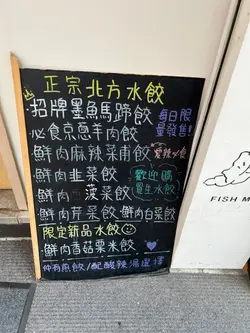 正宗北方水餃
招牌墨魚馬蹄餃 每日限量發售!
必食京蔥羊肉餃
鮮肉麻辣菜甫餃 愛辣必食
鮮肉韭菜餃
鮮肉菠菜餃 歡迎購買生水餃!
鮮肉芹菜餃·鮮肉白菜餃
限定新品水餃
鮮肉香菇粟米餃
仲有煎餃/配酸辣湯選擇
FISH M